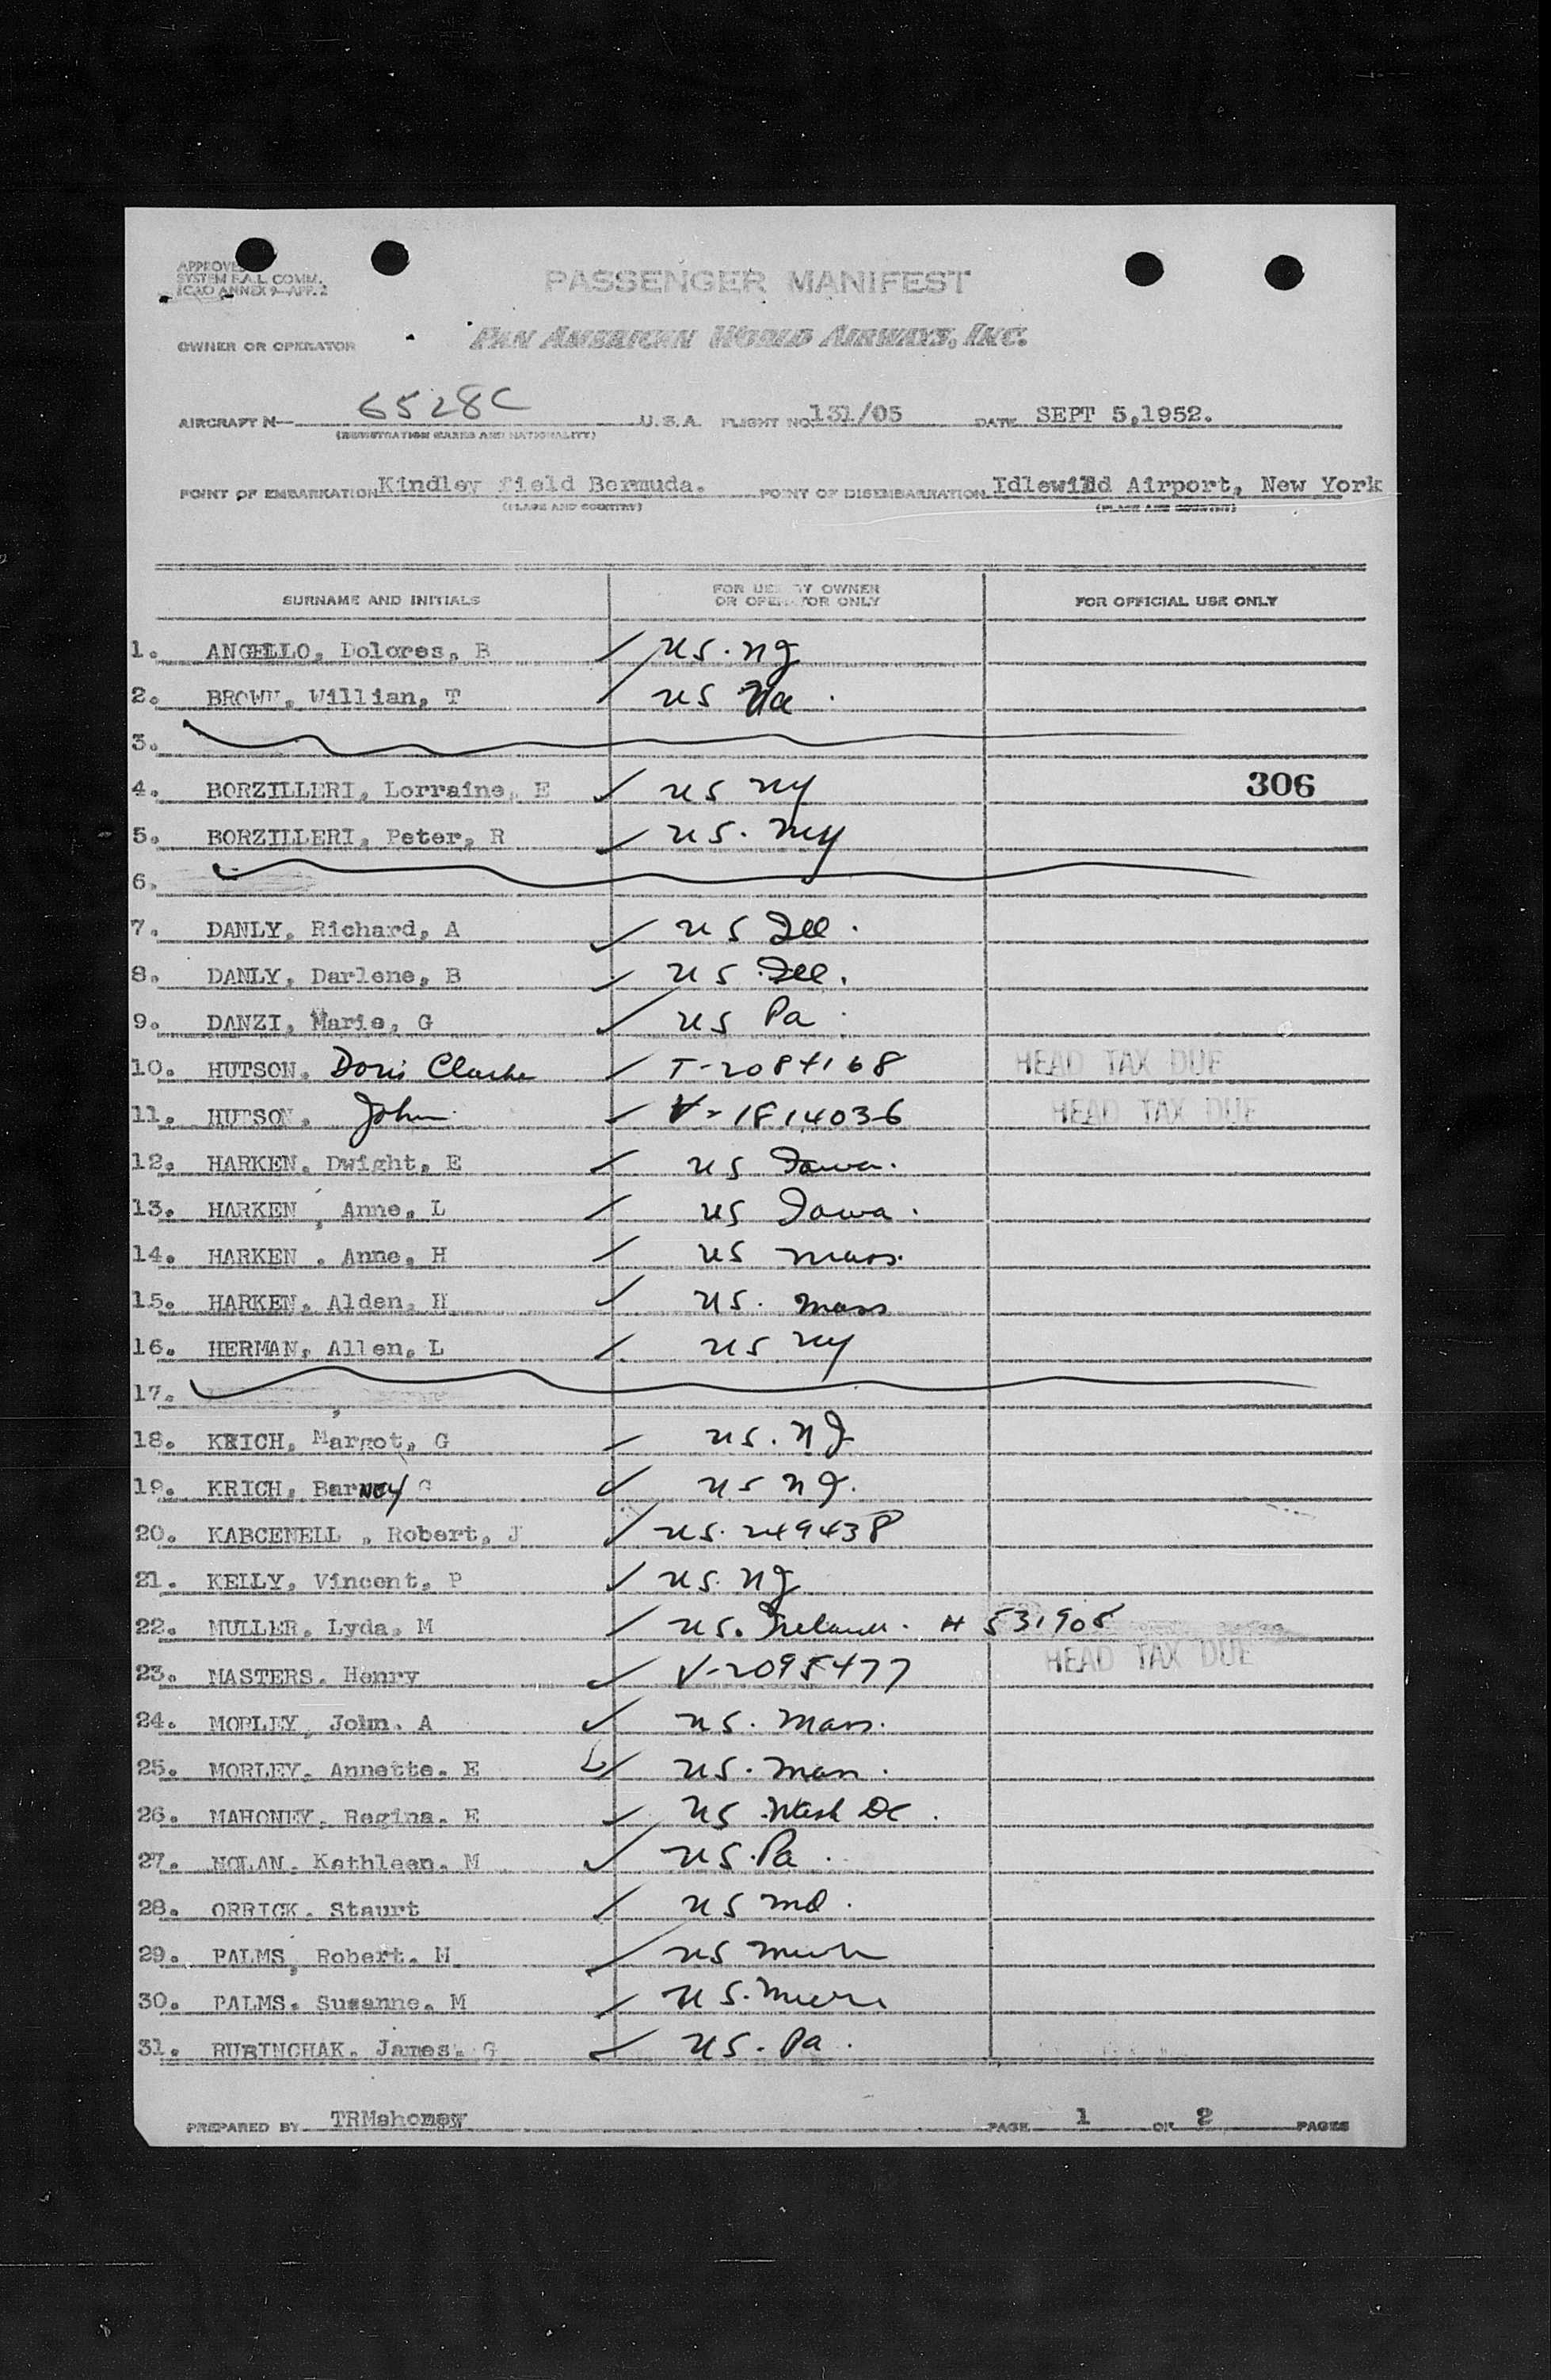 APPROVED
SYSTEM F.A.L. COMM.
ICAO ANNEX 9—APP. 2
PASSENGER MANIFEST
OWNER OR OPERATOR PAN AMERICAN WORLD AIRWAYS, INC.
AIRCRAFT N— 6528C U.S.A. FLIGHT NO. 131/05 DATE SEPT 5,1952.
(REGISTRATION MARKS AND NATIONALITY)
POINT OF EMBARKATION Kindley field Bermuda. POINT OF DISEMBARKATION Idlewild Airport, New York
(PLACE AND COUNTRY) (PLACE AND COUNTRY)
SURNAME AND INITIALS FOR USE BY OWNER OR OPERATOR ONLY FOR OFFICIAL USE ONLY
1. ANGELLO, Dolores, B ✓ US. NJ
2. BROWN, Willian, T ✓ US
3.
4. BORZILLERI, Lorraine, E ✓ US NY 306
5. BORZILLERI, Peter, R ✓ US. NY
6.
7. DANLY, Richard, A ✓ US Ill.
8. DANLY, Darlene, B ✓ US Ill.
9. DANZI, Marie, G ✓ US Pa.
10. HUTSON, Doris Clarke ✓ T-2084168 HEAD TAX DUE
11. HUTSON, John ✓ V-1814036 HEAD TAX DUE
12. HARKEN, Dwight, E ✓ US Iowa.
13. HARKEN, Anne, L ✓ US Iowa.
14. HARKEN, Anne, H ✓ US Mass.
15. HARKEN, Alden, H ✓ US. Mass
16. HERMAN, Allen, L ✓ US NY
17.
18. KRICH, Margot, G ✓ US. NJ
19. KRICH, Barney G ✓ US NJ.
20. KABCENELL, Robert, J ✓ US. 249438
21. KELLY, Vincent, P ✓ US. NJ
22. MULLER, Lyda, M ✓ US. Ireland. H 531905
23. MASTERS. Henry ✓ V-2095477 HEAD TAX DUE
24. MORLEY, John. A ✓ US. Mass.
25. MORLEY. Annette. E ✓ US. Mass.
26. MAHONEY, Regina. E ✓ US Wash DC.
27. NOLAN. Kathleen. M ✓ US. Pa.
28. ORRICK. Staurt ✓ US Md.
29. PALMS, Robert. M ✓ US Mich
30. PALMS. Susanne. M ✓ US.
31. RUBINCHAK. James. G ✓ US. Pa.
PREPARED BY TRMahoney PAGE 1 OF 2 PAGES